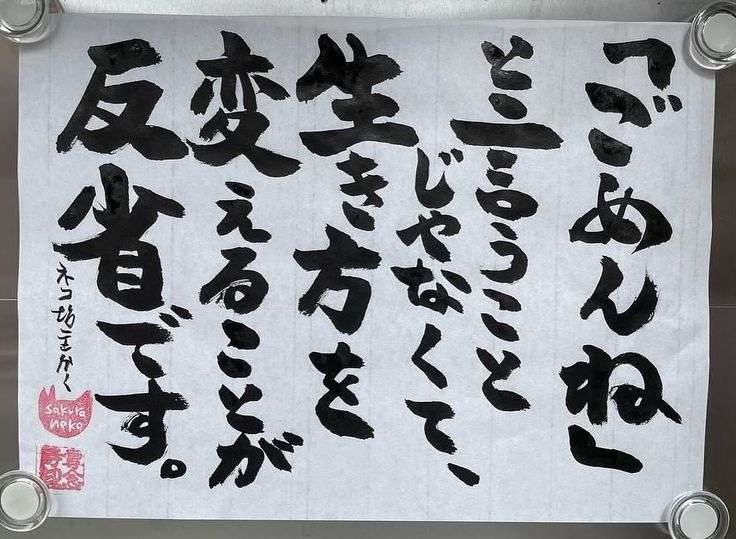 「ごめんね」
と言うこと
じゃなくて、
生き方を
変えることが
反省です。
ネコ坊主かく
sakura
neko